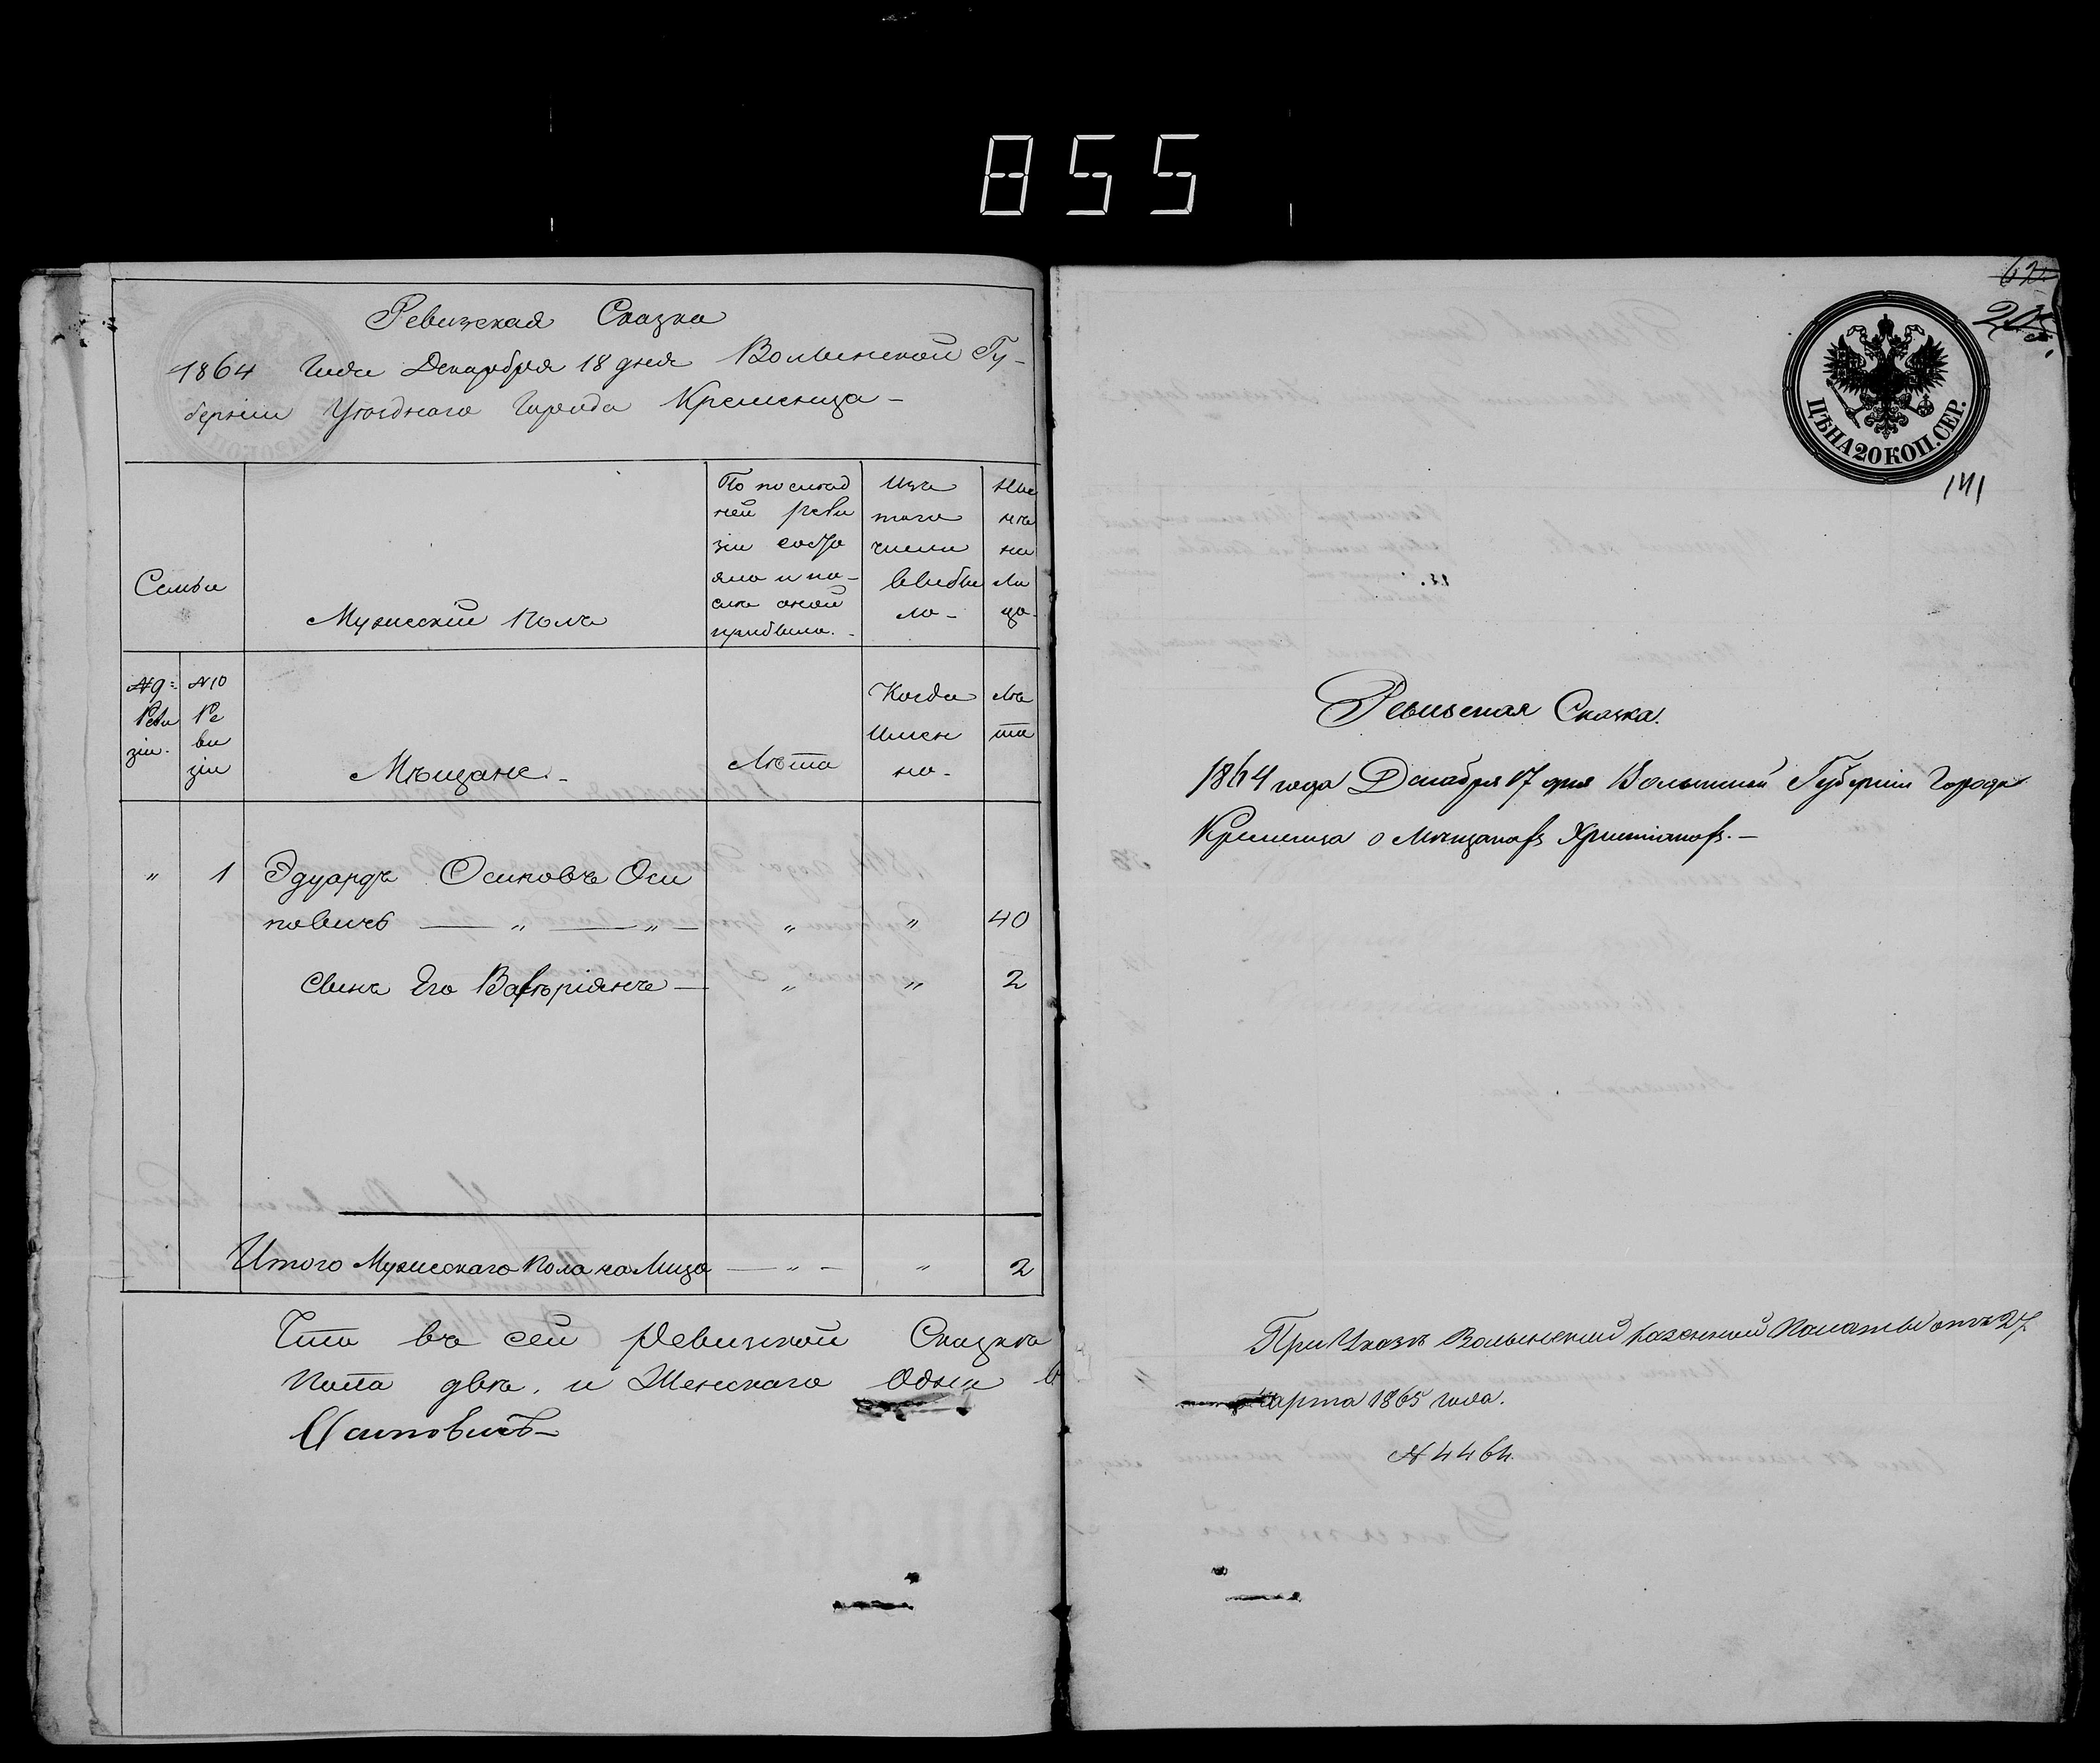 855
Ревизская Сказка
1864 года Декабря 18 дня Волынской Гу-
берніи Уѣзднаго Города Кременца -
Семьи
Мужескій полъ
По послѣд
ней реви
зіи состо
яло и по-
слѣ оной
прибыло.
Изъ
того
числа
выбы
ло -
Ны
нѣ
на
ли
цо.
№ 9
Реви
зіи.
№ 10
Ре
ви
зіи
Мѣщане. -
Лѣта
Когда
имен
но.
Лѣ
та
" 1 Эдуардъ Осиповъ Оси
повичъ " " " " 40
Сынъ Его Валѣріянъ " " 2
Итого Мужескаго пола на Лицо " " 2
Что въ сей Ревизской Сказкѣ
пола два, и Женскаго одна
Осиповичъ
62
205.
ЦѢНА 20 КОП. СЕР.
141
Ревизская Сказка.
1864 года Декабря 17 дня Волынской Губерніи Города
Кременца о Мѣщанахъ Христіанахъ. -
При Указѣ Волынской Казенной Палаты отъ 27
Марта 1865 года.
№ 4464.